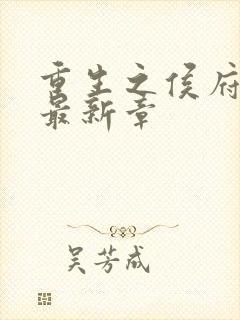 重生之侯府
最新章
吴芳成